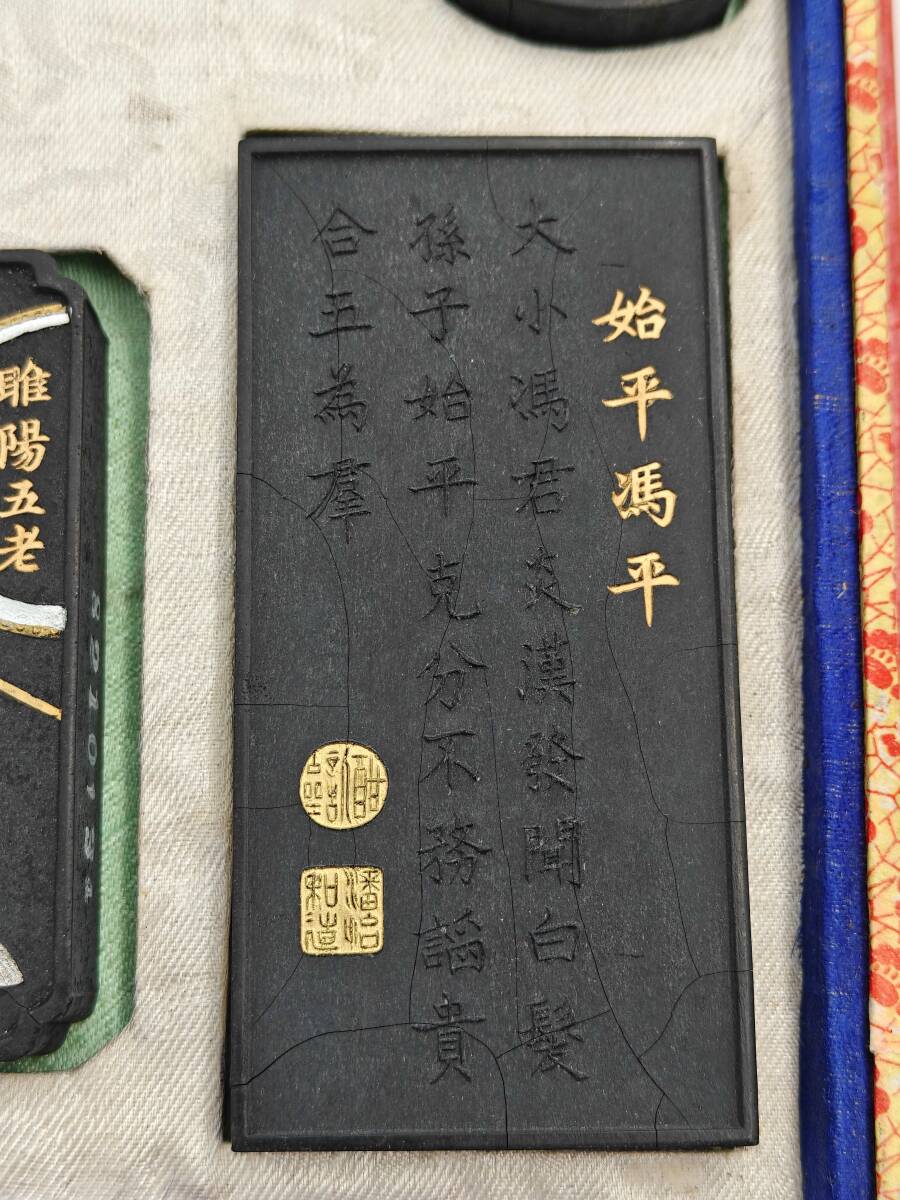 始平馮平
大小馮君炎漢發聞白髮
孫子始平克分不務謟貴
合五為羣
潘怡
和造
睢陽五老